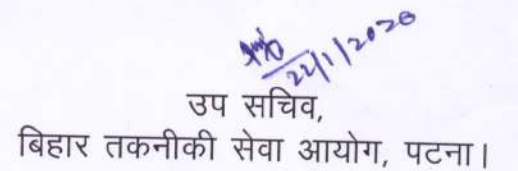 22/1/2020
उप सचिव,
बिहार तकनीकी सेवा आयोग, पटना।